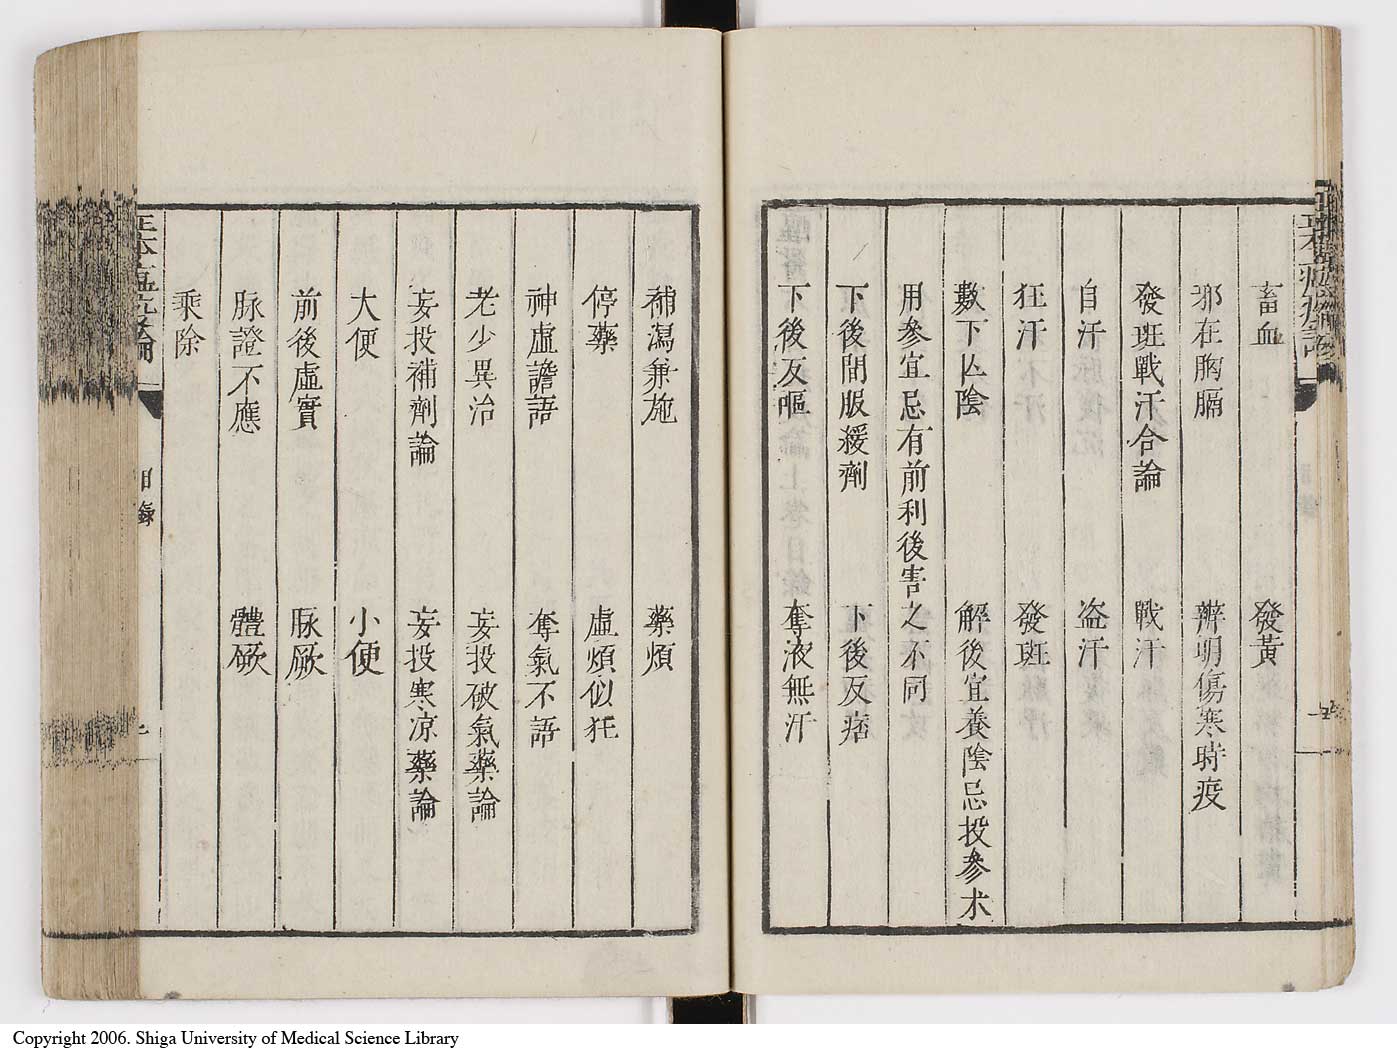 畜血 發黃
邪在胸膈 辨明傷寒時疫
發斑戰汗合論 戰汗
自汗 盗汗
狂汗 發斑
數下亾陰 解後宜養陰忌投參术
用參宜忌有前利後害之不同
下後間服緩劑 下後反痞
下後反嘔 奪液無汗
補瀉兼施 藥煩
停藥 虛煩似狂
神虛譫語 奪氣不語
老少異治 妄投破氣藥論
妄投補劑論 妄投寒凉藥論
大便 小便
前後虛實 脉厥
脉證不應 體厥
乘除
目錄
Copyright 2006. Shiga University of Medical Science Library